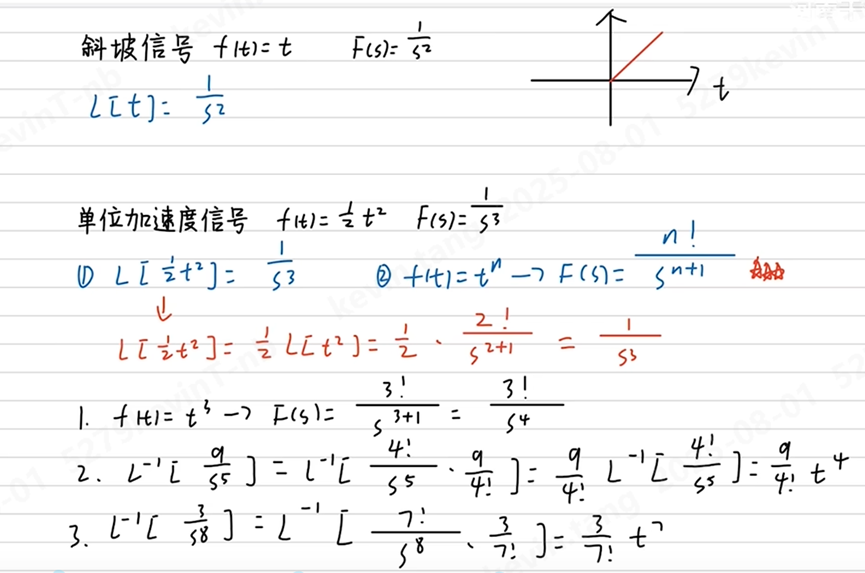 斜坡信号 f(t)=t F(s)=1/s²
L[t]=1/s²
t
单位加速度信号 f(t)=½t² F(s)=1/s³
① L[½t²]=1/s³ ② f(t)=tⁿ → F(s)=n!/sⁿ⁺¹
↓
L[½t²]=½L[t²]=½·2!/s²⁺¹=1/s³
1. f(t)=t³ → F(s)=3!/s³⁺¹=3!/s⁴
2. L⁻¹[9/s⁵]=L⁻¹[4!/s⁵·9/4!]=9/4! L⁻¹[4!/s⁵]=9/4! t⁴
3. L⁻¹[3/s⁸]=L⁻¹[7!/s⁸·3/7!]=3/7! t⁷